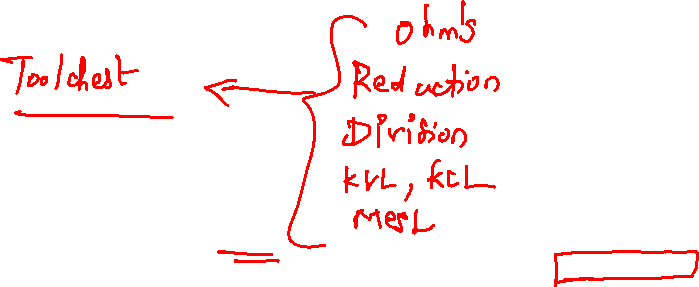 Toolchest
Ohm's
Reduction
Division
KVL, KCL
Mesh